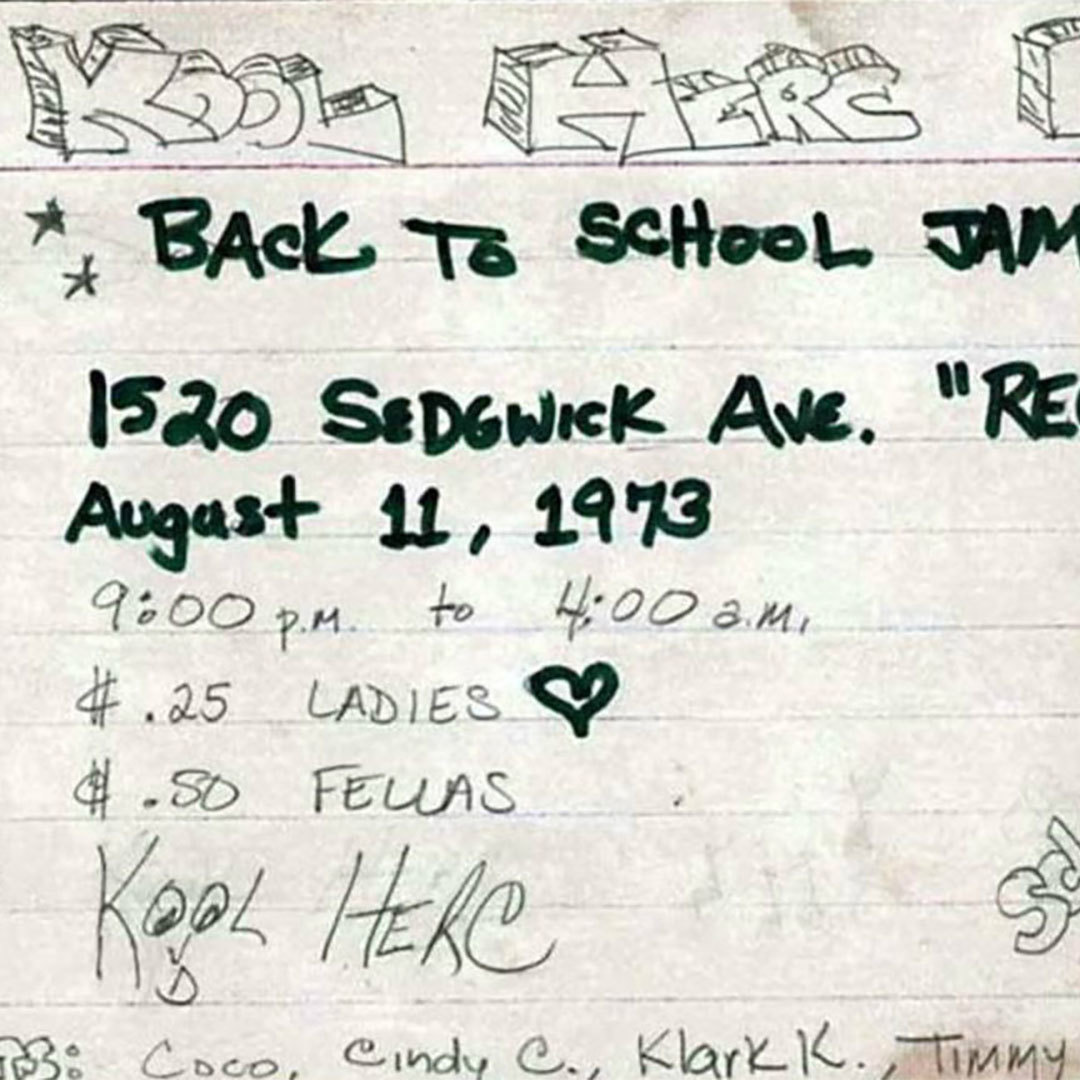 KOOL HERC
BACK TO SCHOOL JAM
1520 SEDGWICK AVE. "REC
August 11, 1973
9:00 p.m. to 4:00 a.m.
$.25 LADIES
$.50 FELLAS
KOOL HERC
Coco, Cindy C., Klark K., Timmy